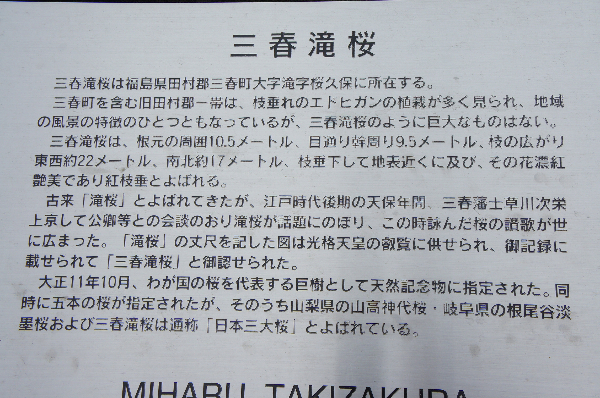 三春滝桜
三春滝桜は福島県田村郡三春町大字滝字桜久保に所在する。
三春町を含む旧田村郡一帯は、枝垂れのエドヒガンの植栽が多く見られ、地域
の風景の特徴のひとつともなっているが、三春滝桜のように巨大なものはない。
三春滝桜は、根元の周囲10.5メートル、目通り幹周り9.5メートル、枝の広がり
東西約22メートル、南北約17メートル、枝垂下して地表近くに及び、その花濃紅
艶美であり紅枝垂とよばれる。
古来「滝桜」とよばれてきたが、江戸時代後期の天保年間、三春藩士草川次栄
上京して公卿等との会談のおり滝桜が話題にのぼり、この時詠んだ桜の讃歌が世
に広まった。「滝桜」の丈尺を記した図は光格天皇の叡覧に供せられ、御記録に
載せられて「三春滝桜」と御認せられた。
大正11年10月、わが国の桜を代表する巨樹として天然記念物に指定された。同
時に五本の桜が指定されたが、そのうち山梨県の山高神代桜・岐阜県の根尾谷淡
墨桜および三春滝桜は通称「日本三大桜」とよばれている。
MIHARU TAKIZAKURA